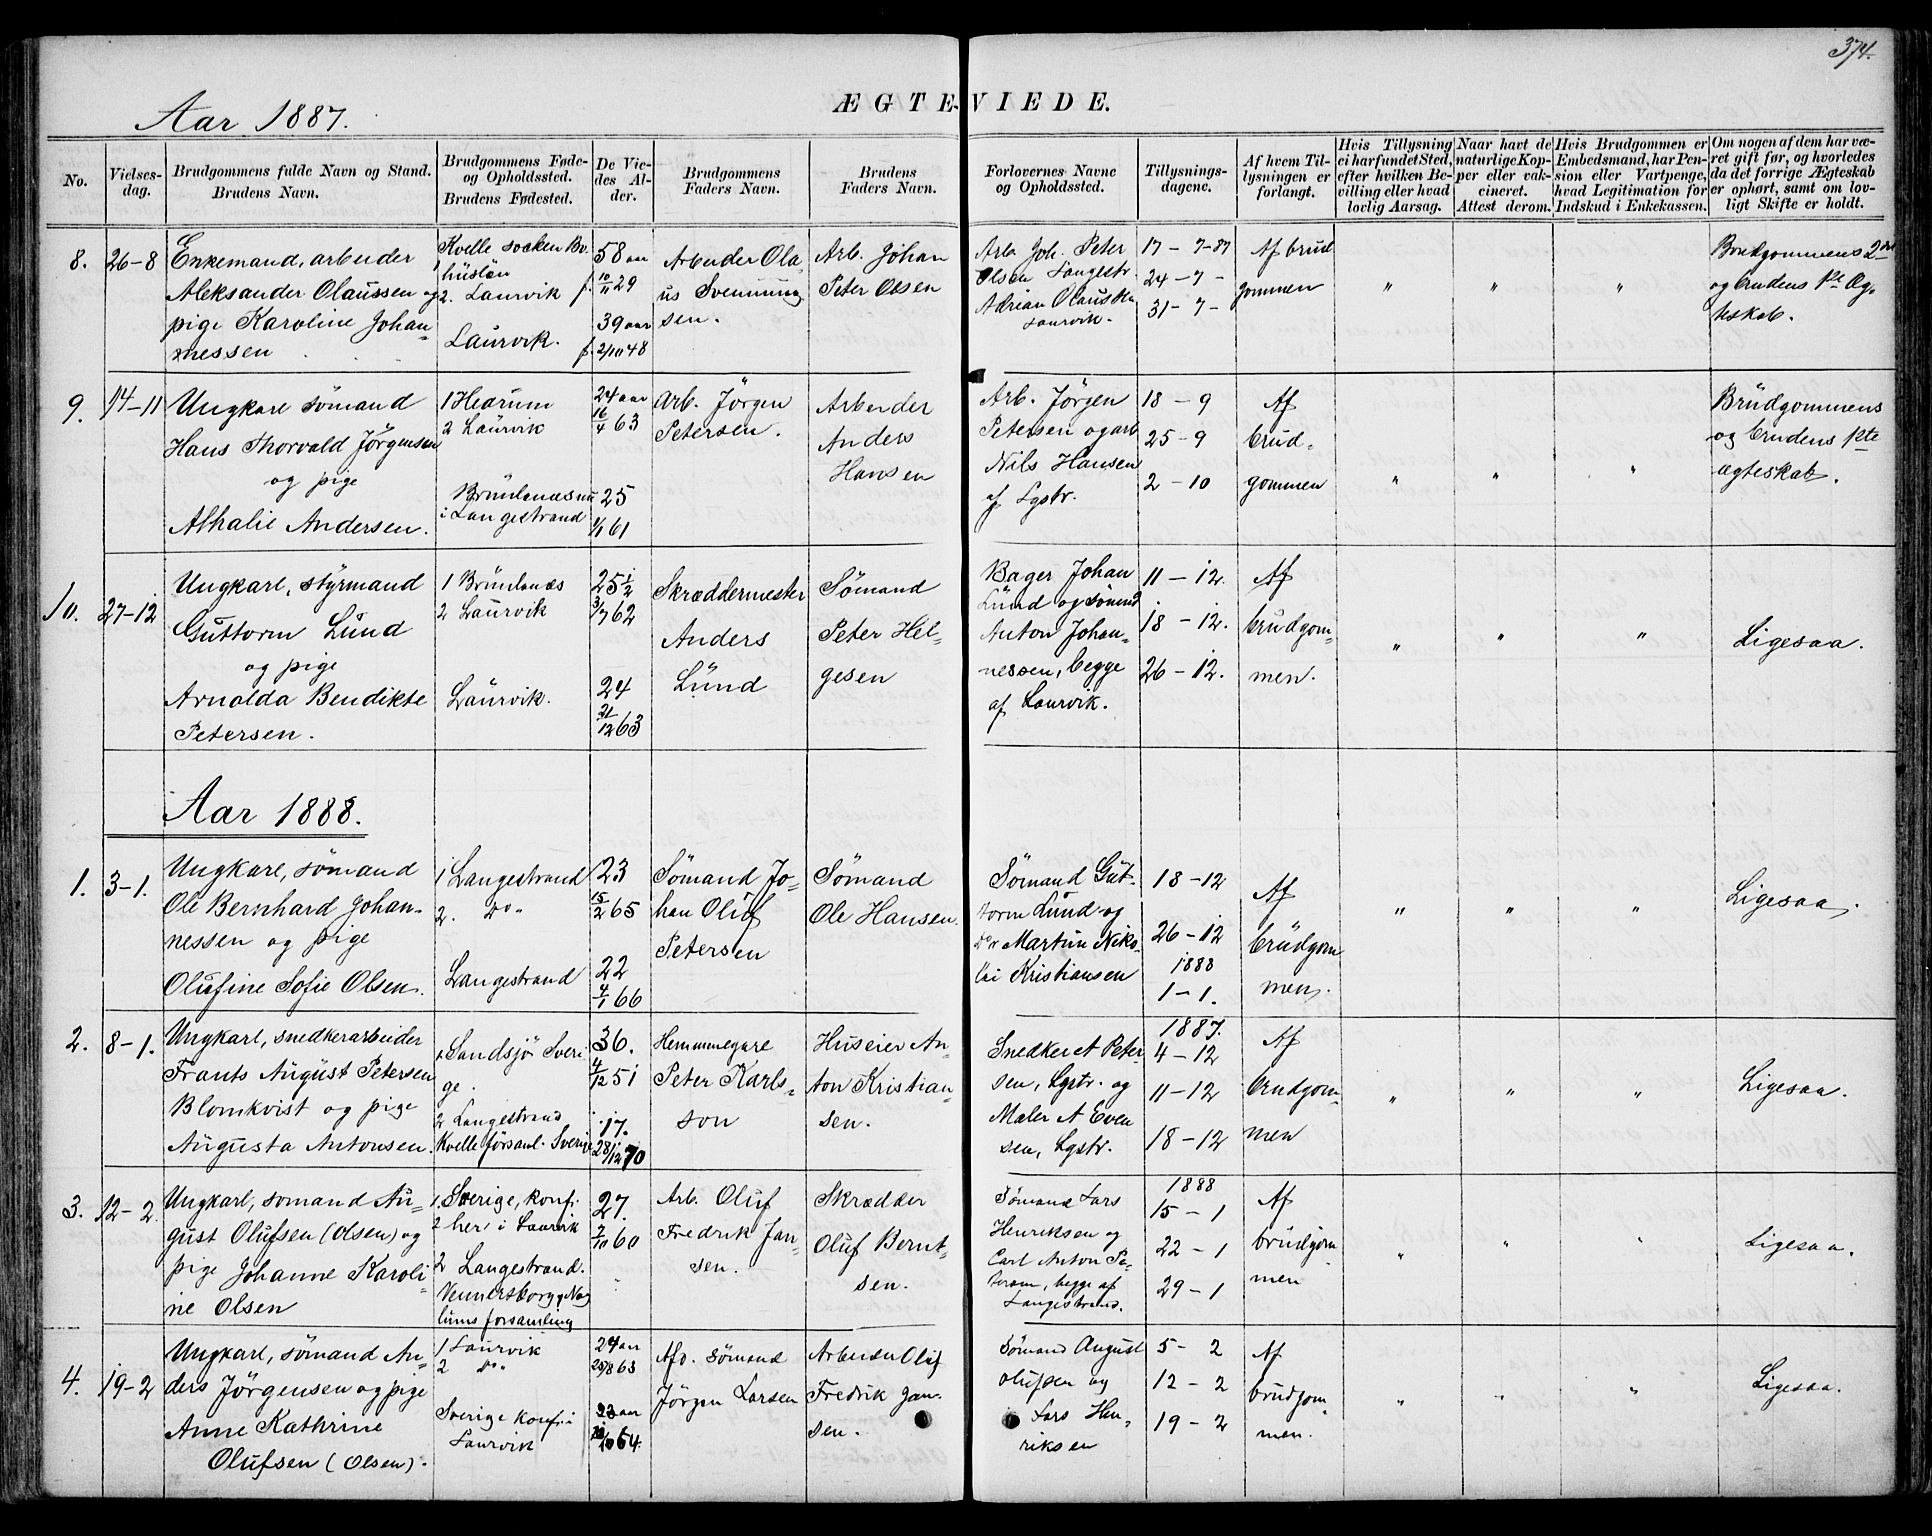 374.
Aar 1887.
ÆGTEVIEDE.
No.
Vielses-
dag.
Brudgommens fulde Navn og Stand.
Brudens Navn.
Brudgommens Føde-
og Opholdssted.
Brudens Fødested.
De Vie-
des Al-
der.
Brudgommens
Faders Navn.
Brudens
Faders Navn.
Forlovernes Navne
og Opholdssted.
Tillysnings-
dagene.
Af hvem Til-
lysningen er
forlangt.
Hvis Tillysning
ei har fundet Sted,
efter hvilken Be-
villing eller hvad
lovlig Aarsag.
Naar havt de
naturlige Kop-
per eller vak-
cineret.
Attest derom.
Hvis Brudgommen er
Embedsmand, har Pen-
sion eller Vartpenge,
hvad Legitimation for
Indskud i Enkekassen.
Om nogen af dem har væ-
ret gift før, og hvorledes
da det forrige Ægteskab
er ophørt, samt om lov-
ligt Skifte er holdt.
8.
26-8
Enkemand, arbeider
Aleksander Olaussen og
pige Karoline Johan-
nessen
Kville socken Bo-
huslän
2. Laurvik
Laurvik.
58 aar
f. 10/11 29
39 aar
f. 2/10 48
Arbeider Ola-
us Svenning
sen.
Arb. Johan
Peter Olsen
Arb. Joh. Peter
Olsen Langestr.
Adrian Olaussen
Laurvik.
17-7-87
24-7-
31-7-
Af brud
gommen
" " "
Brudgommens 2det
og brudens 1ste Æg-
teskab.
9.
14-11
Ungkarl sømand
Hans Thorvald Jörgensen
og pige
Athalie Andersen.
1 Hedrum
2 Laurvik
Brunlanæs nu
i Langestrand
24 aar
16/4 63
25
1/1 61
Arb. Jörgen
Petersen.
Arbeider
Anders
Hansen
Arb. Jörgen
Petersen og arb
Nils Hansen
af Lgstr.
18-9
25-9
2-10
Af
brud-
gommen
" " "
Brudgommens
og brudens 1ste
ægteskab.
10.
27-12
Ungkarl, styrmand
Guttorm Lund
og pige
Arnolda Bendikte
Petersen.
1 Brunlanæs
2 Laurvik
Laurvik.
25 1/2
3/7 62
24
21/12 63
Skræddermester
Anders
Lund
Sömand
Peter Hel-
gesen
Bager Johan
Lund og sömand
Anton Johan-
nessen, begge
af Laurvik.
11-12.
18-12.
26-12.
Af
brudgom-
men.
" " "
Ligesaa.
Aar 1888.
1.
3-1.
Ungkarl, sömand
Ole Bernhard Johan-
nessen og pige
Olufine Sofie Olsen.
1 Langestrand
2. Do "
Langestrand
23
15/2 65
22
4/1 66
Sömand Jo-
han Oluf
Petersen
Sömand
Ole Hansen.
Sömand Gut-
torm Lund og
Do Martin Niko-
lai Kristiansen
18-12
26-12
1888
1-1.
Af
brudgom
men.
" " "
Ligesaa.
2.
8-1.
Ungkarl, snedkerarbeider
Frants August Petersen
Blomkvist og pige
Augusta Antonsen.
1 Sandsjö Sveri
ge.
2 Langestrand
Kville forsaml. Sverige
36.
4/12 51
17.
28/12 70
Hemmegare
Peter Karls-
son
Huseier An-
ton Kristian-
sen.
Snedker A Peter-
sen, Lgstr. og
Maler A Even
sen, Lgstr.
1887.
4-12
11-12
18-12
Af
brudgom-
men
" " "
Ligesaa.
3.
12-2.
Ungkarl, somand Au-
gust Olufsen (Olsen) og
pige Johanne Karoli
ne Olsen
1. Sverige, konf.
her i Laurvik
2 Langestrand.
Vennersborg, Nag
lums forsamling
27.
2/10 60
Arb. Oluf
Fredrik Jan-
sen.
Skrædder
Oluf Bernt-
sen.
Sömand Lars
Henriksen og
Carl Anton Pe-
terson, begge af
Langestrand.
1888
15-1
22-1
29-1
Af
brudgom
men
" " "
Ligesaa.
4.
19-2
Ungkarl, sömand An-
ders Jörgensen og pige
Anne Kathrine
Olufsen (Olsen).
1 Laurvik
2 Do "
Sverige konf. i
Laurvik
24 aar
23 aar
Afd. sömand
Jörgen Larsen
Arbeider Oluf
Fredrik Jan-
sen.
Sömand August
Olufsen og
Lars Hen-
riksen
5-2
12-2
19-2
Af
brudgom-
men.
" " "
Ligesaa.